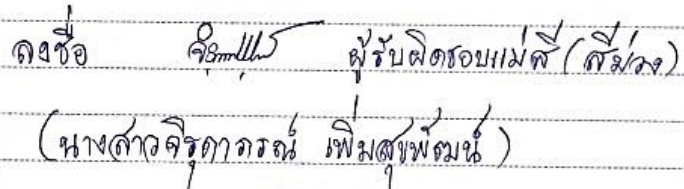 ลงชื่อ ผู้รับผิดชอบแม่สี (สีม่วง)
(นางสาวจิรุดาภรณ์ เพิ่มสุขพัฒน์)